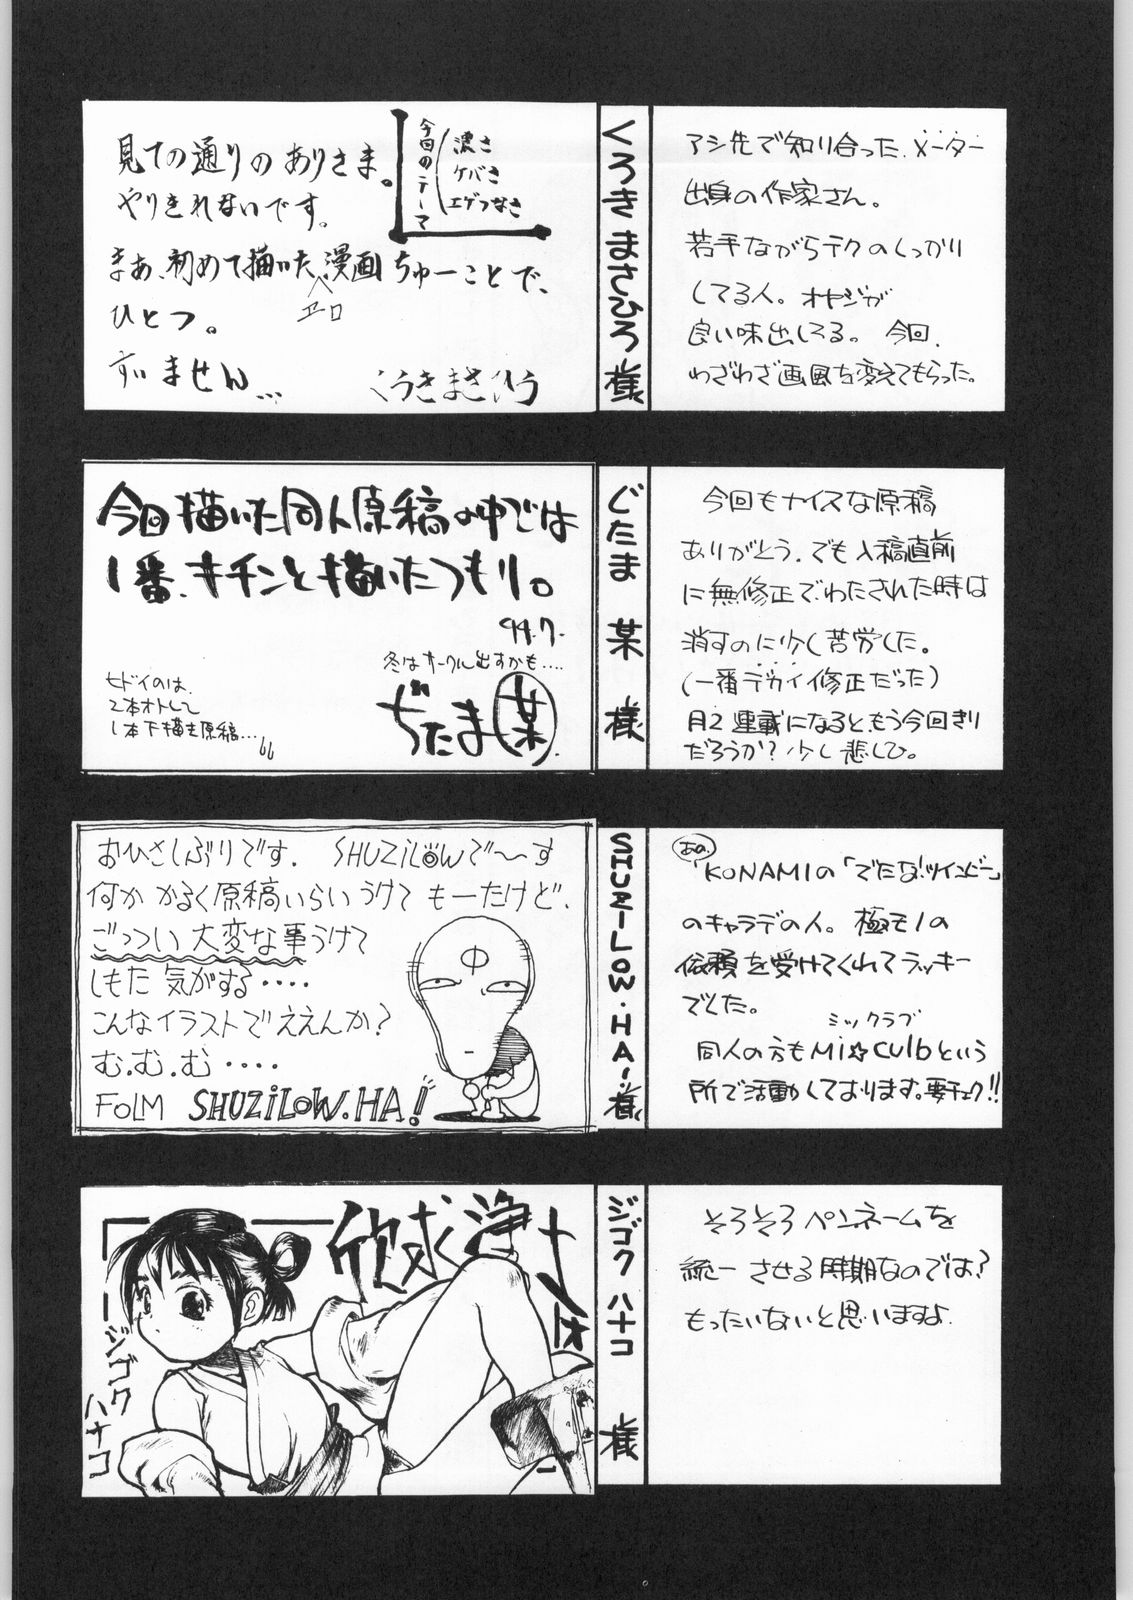 見ての通りのありさま。
やりきれないです。
まぁ、初めて描いた漫画ちゅーことで、
エロ
ひとつ。
すいません…
くろきまさひろ
今回のテーマ
濃さ
ケバさ
エゲつなさ
くろきまさひろ様
アシ先で知り合った、メーター
出身の作家さん。
若手ながらテクのしっかり
してる人。オヤジが
良い味出してる。今回、
わざわざ画風を変えてもらった。
今回描いた同人原稿の中では
1番、キチンと描いたつもり。
94.7-
冬はサークル出すかも‥‥
ヒドイのは、
2本オトして
1本下描き原稿…
ぢたま(某)
ぢたま 某 様
今回もナイスな原稿
ありがとう。でも入稿直前
に無修正でわたされた時は
消すのに少し苦労した。
(一番デカイ修正だった)
月2連載になると、もう今回きり
だろうか?少し悲しひ。
おひさしぶりです. SHUZiLOWで〜す
何か かるく原稿いらいうけて もーたけど、
ごっつい 大変な事うけて
しもた 気がする・・・・
こんなイラストでええんか?
む.む.む・・・・
FoLM SHUZiLOW.HA!
中
SHUZILOW・HA!様
あの、
「KONAMIの「でたな!ツインビー」
のキャラデの人。極モノの
依頼を受けてくれてラッキー
でした。
ミックラブ
同人の方もMi☆Culbという
所で活動しております。要チェク!!
欣求浄土
ジゴクハナコ
ジゴク ハナコ 様
そろそろペンネームを
統一させる時期なのでは?
もったいないと思いますよ.